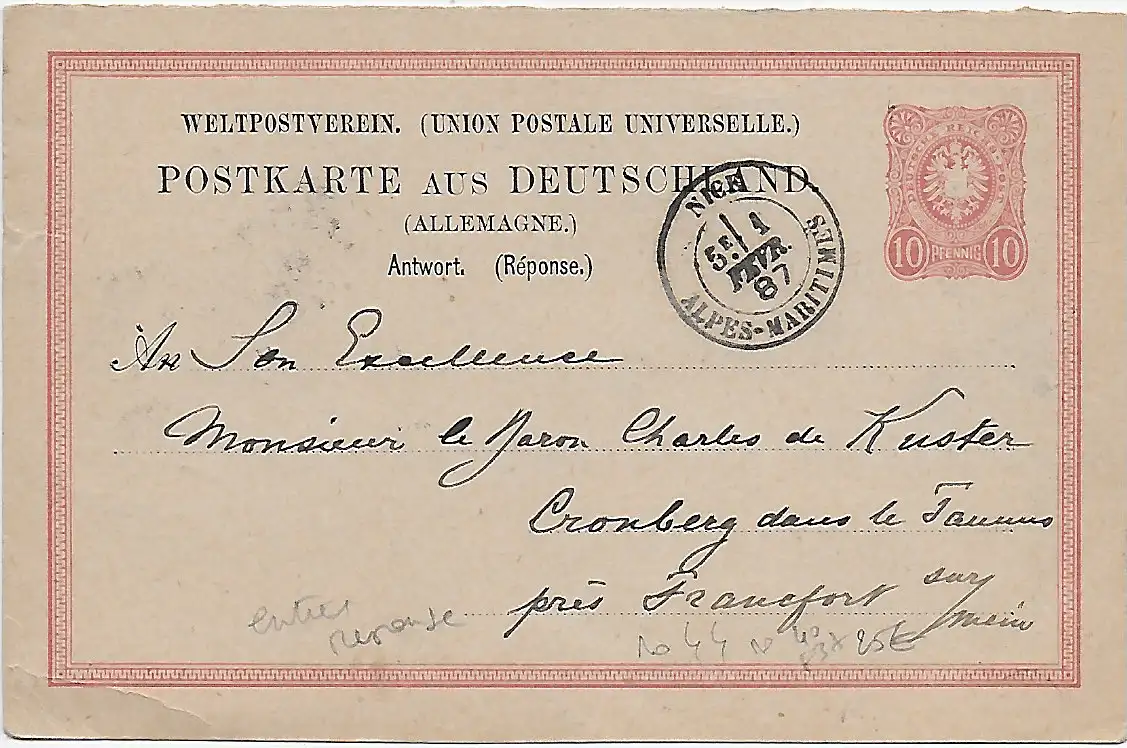 WELTPOSTVEREIN. (UNION POSTALE UNIVERSELLE.)
POSTKARTE AUS DEUTSCHLAND.
(ALLEMAGNE.)
Antwort. (Réponse.)
DEUTSCHE REICHS-POST
10 PFENNIG 10
NICE
5E 1
FEVR.
87
ALPES-MARITIMES
An Son Excellence
Monsieur le Baron Charles de Kuster
Cronberg dans le Taunus
près Francfort sur
mein
entier
reponse
25€